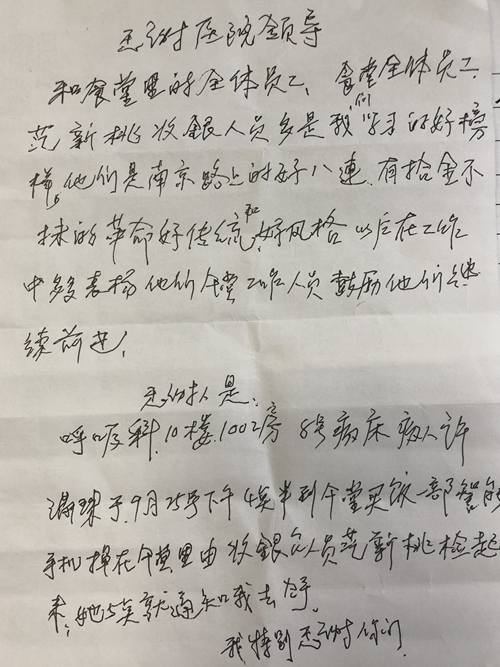 感谢医院领导
和食堂里的全体员工、食堂全体员工
范新桃收銀人员多是我们学习的好榜
样。他们是南京路上的好八連.有拾金不
昧的革命好传统和好风格以后在工作
中多表扬他们食堂工作人员鼓励他们继
续前进！
感谢人是：
呼吸科.10楼.1002房 8号病床病人许
满珠于9月25号下午4点半到食堂买饭一部智能
手机掉在食堂里由收銀人员范新桃检起
来，她5点就通知我去拿.
我特别感谢你们